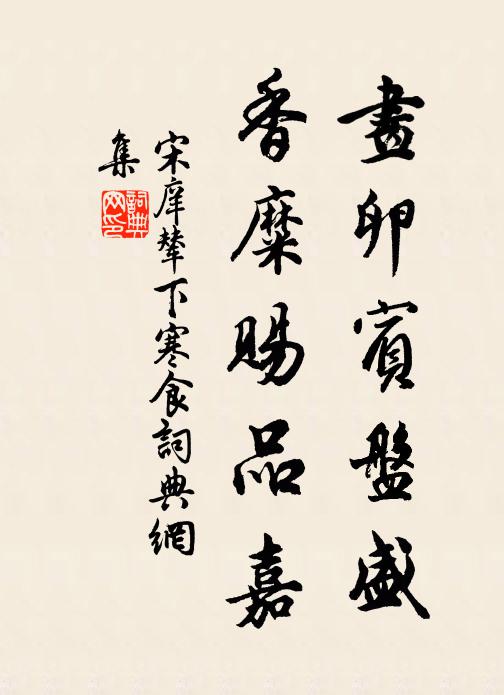 畫卵賓盤盛
香糜賜品嘉
宋庠輦下寒食詞典網
集
詞典
网印